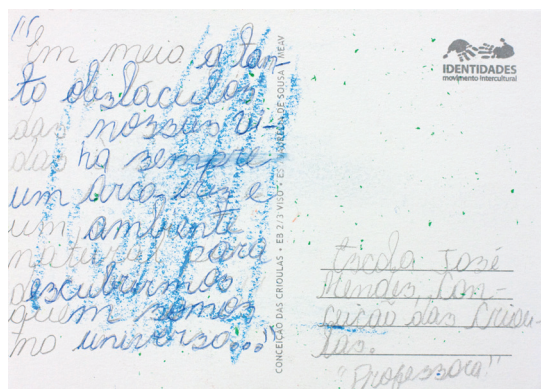 "Em meio a tan-
to obstaculos
das nossas vi-
das ha sempre
um arco-iris e
um ambiente
natural para
descubrirmos
quem somos
no universo..."
CONCEIÇÃO DAS CRIOULAS • EB 2/3 VISO • ES DE SOUSA MEAV
IDENTIDADES
movimento intercultural
Escola José
Mendes Con-
ceição das Criou-
las.
"Professora"